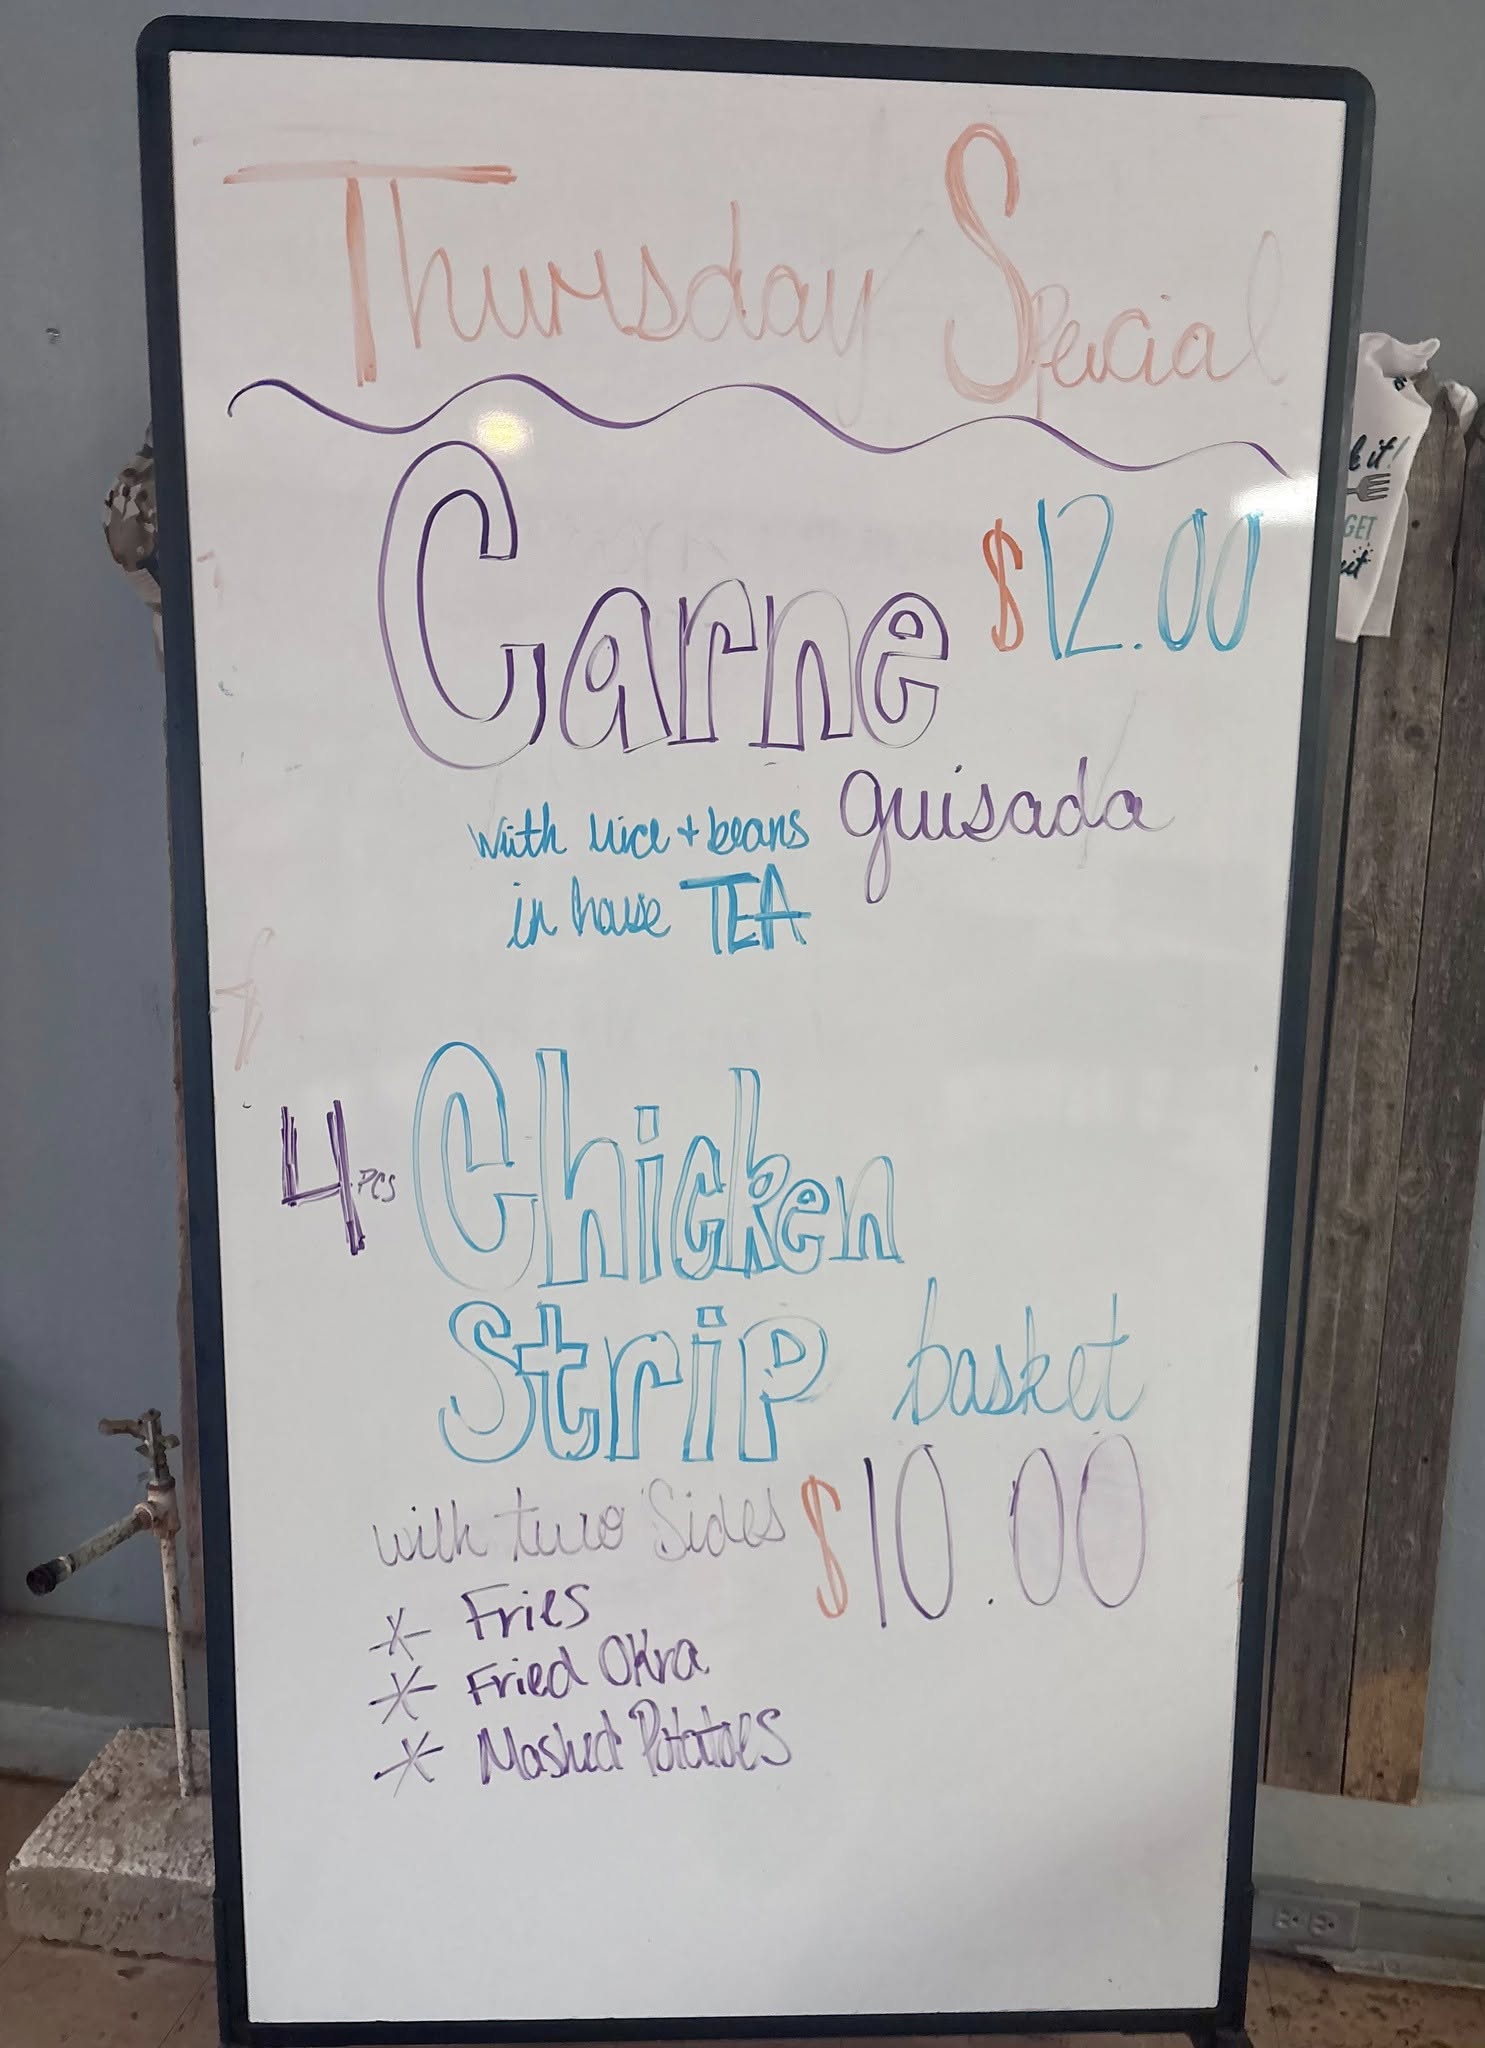 Thursday Special
Carne $12.00
guisada
with rice + beans
in house TEA
4 PCS Chicken
Strip basket
with two Sides $10.00
* Fries
* Fried Okra
* Mashed Potatoes
it!
GET